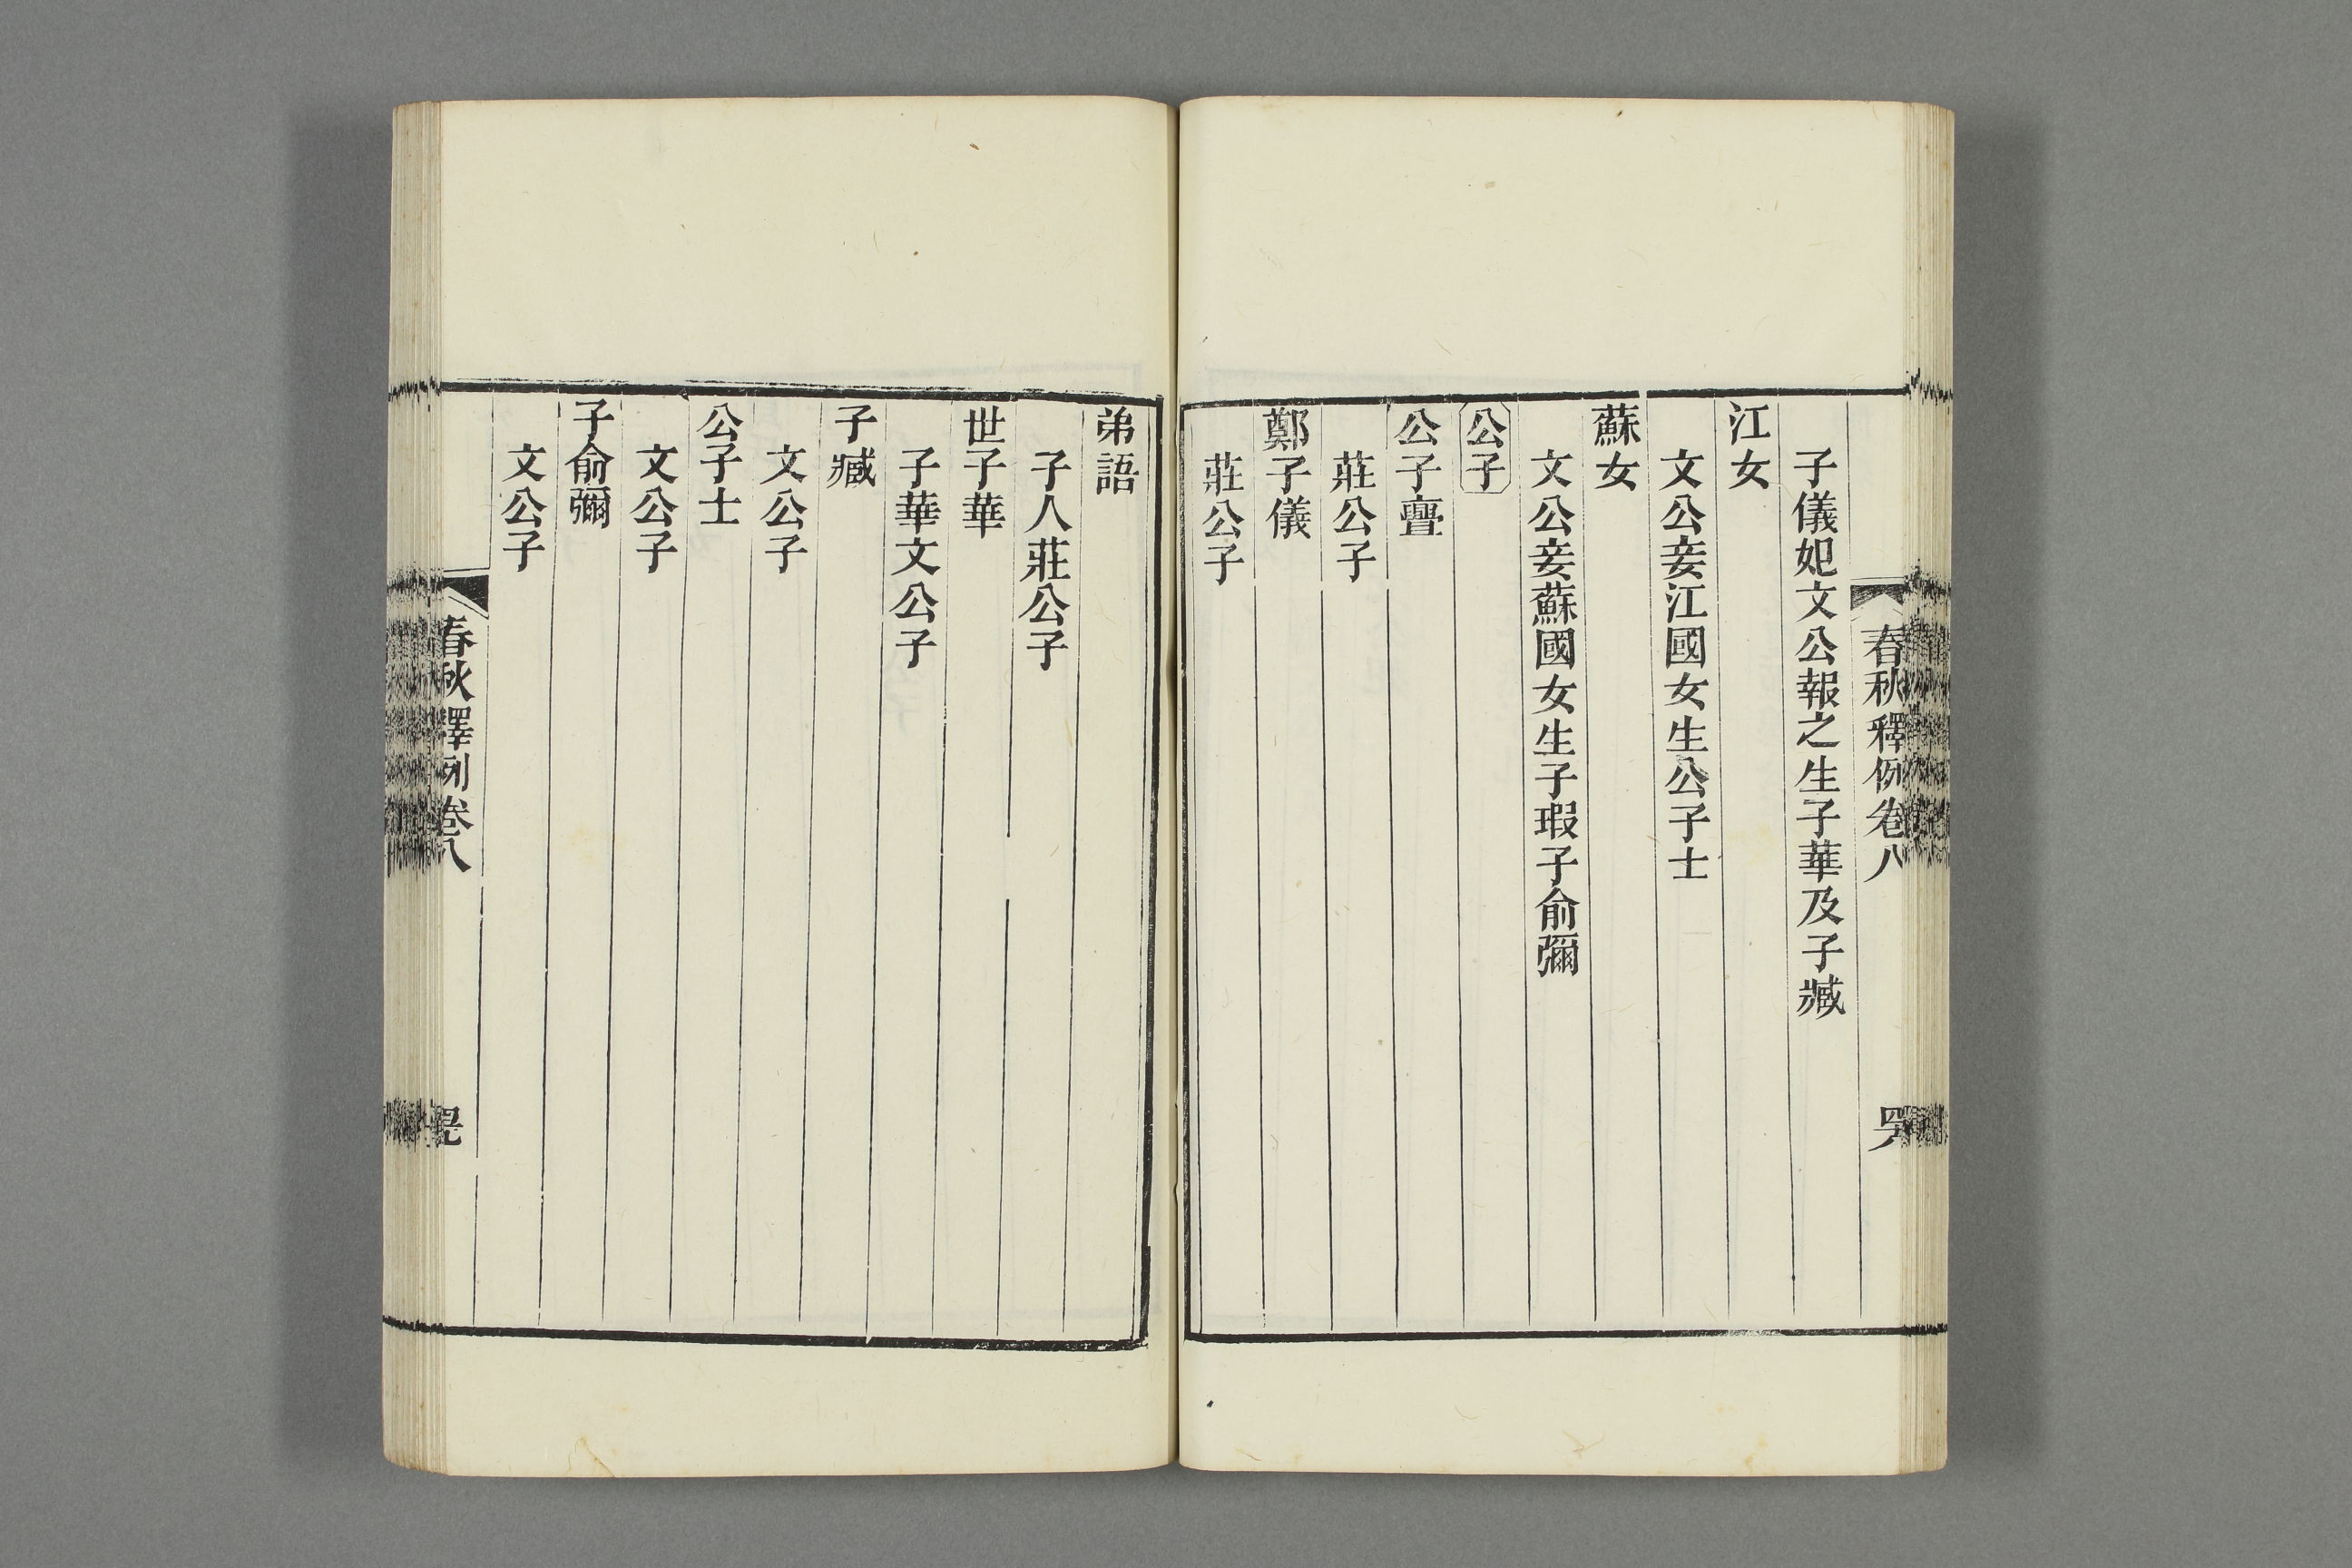 春秋釋例卷八
子儀妃文公報之生子華及子臧
江女
文公妾江國女生公子士
蘇女
文公妾蘇國女生子瑕子俞彌
公子
公子亹
莊公子
鄭子儀
莊公子
弟語
子人莊公子
世子華
子華文公子
子臧
文公子
公子士
文公子
子俞彌
文公子
春秋釋例卷八